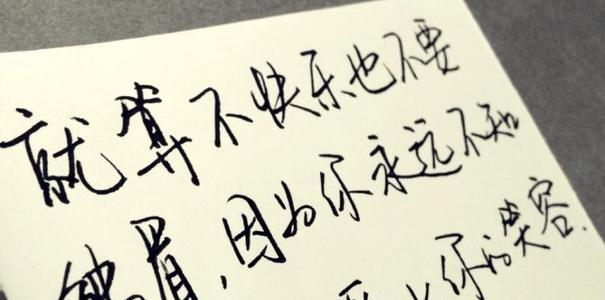 就算不快乐也不要
皱眉,因为你永远不知
你的笑容.